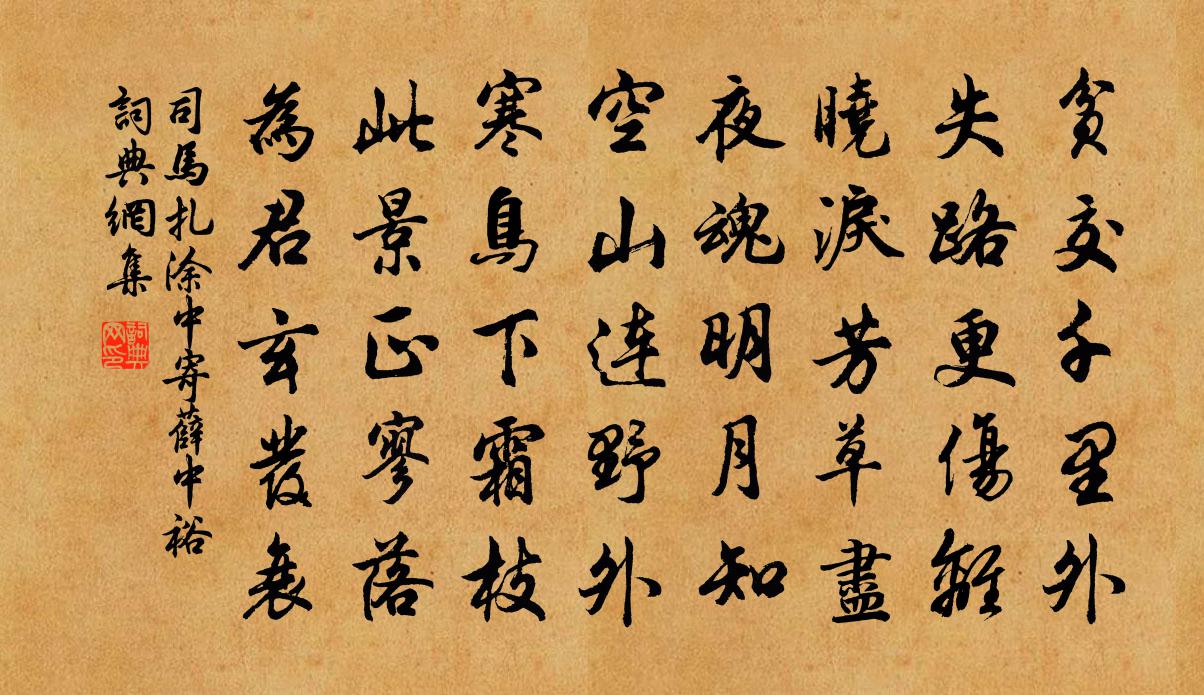 貧交千里外
失路更傷離
曉淚芳草盡
夜魂明月知
空山連野外
寒鳥下霜枝
此景正寥落
為君玄發衰
司馬扎涂中寄薛中裕
詞典網集
詞典网印